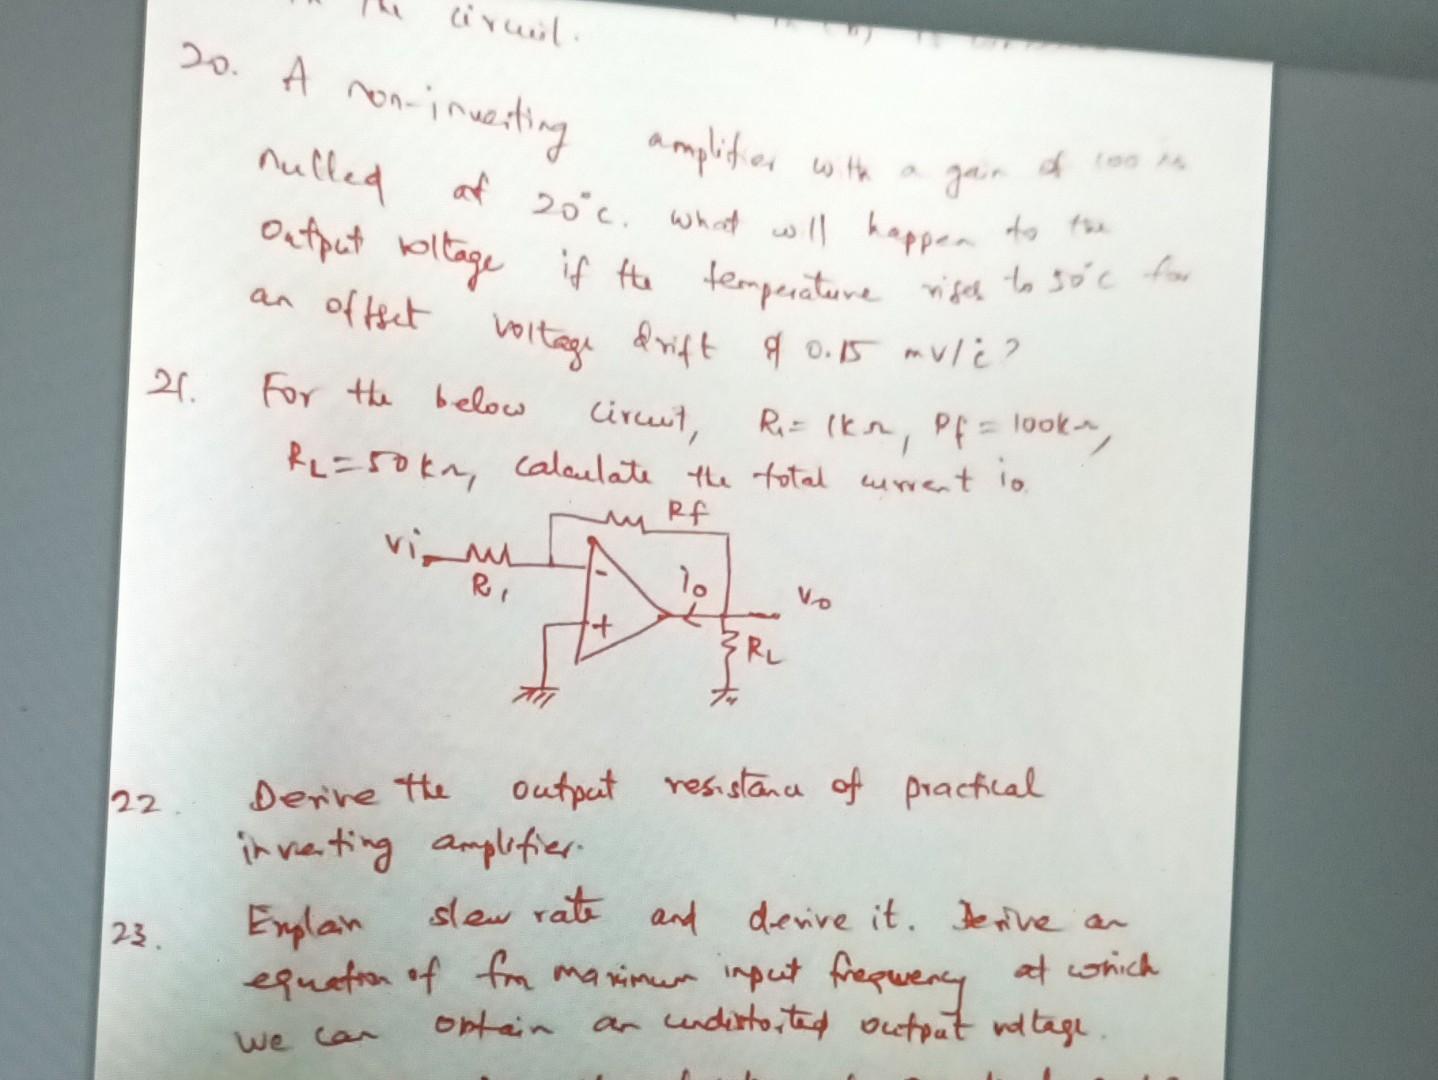 the circuit.
20. A non-inverting amplifier with a gain of 100 is
nulled at 20°c. what will happen to the
output voltage if the temperature rises to 50°c for
an offset voltage drift of 0.15 mv/°c?
21. For the below circuit, R1 = 1kΩ, Rf = 100kΩ,
RL = 50kΩ, calculate the total current io.
Rf
Vi
R1
-
io
Vo
+
RL
22. Derive the output resistance of practical
inverting amplifier.
23. Explain slew rate and derive it. Derive an
equation of fm maximum input frequency at which
we can obtain an undistorted output voltage.